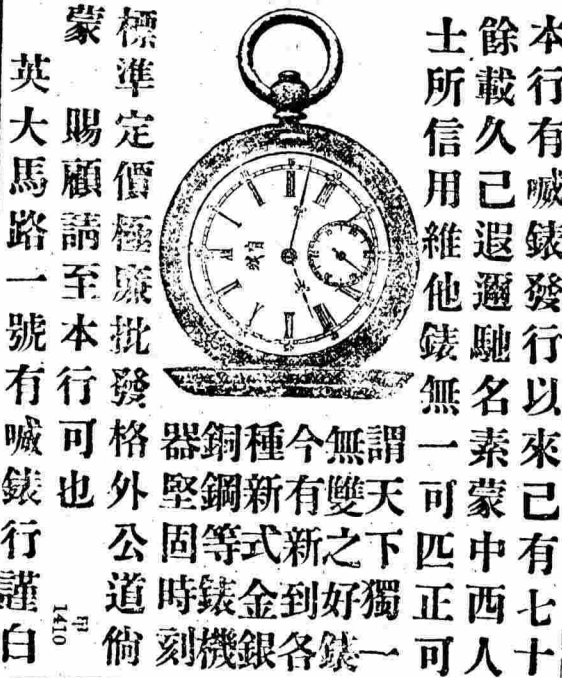 本行有喊錶發行以來已有七十
餘載久已遐邇馳名素蒙中西人
士所信用維他錶無一可匹正可
謂天下獨一
無雙之好錶
今有新到各
種新式金銀
銅鋼等錶機
器堅固時刻
標準定價極廉批發格外公道倘
蒙 賜顧請至本行可也
英大馬路一號有喊錶行謹白
1410